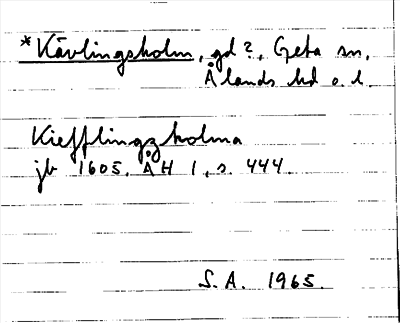 *Kävlingsholm, gd ?, Geta sn,
Ålands hd o. l.
Kiefflingzholma
jb 1605. ÅH 1, s. 444.
S. A. 1965.